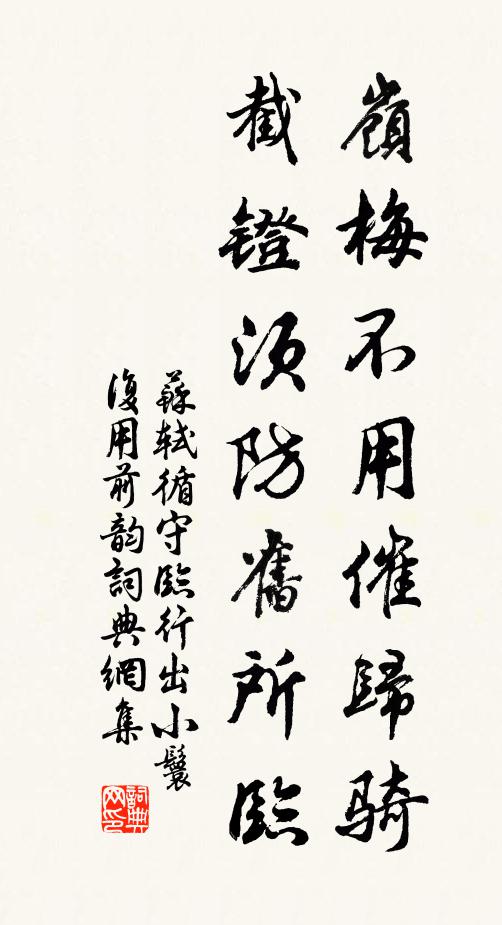 嶺梅不用催歸騎
截鐙須防舊所臨
蘇軾循守臨行出小鬟
復用前韵詞典網集
詞典網印